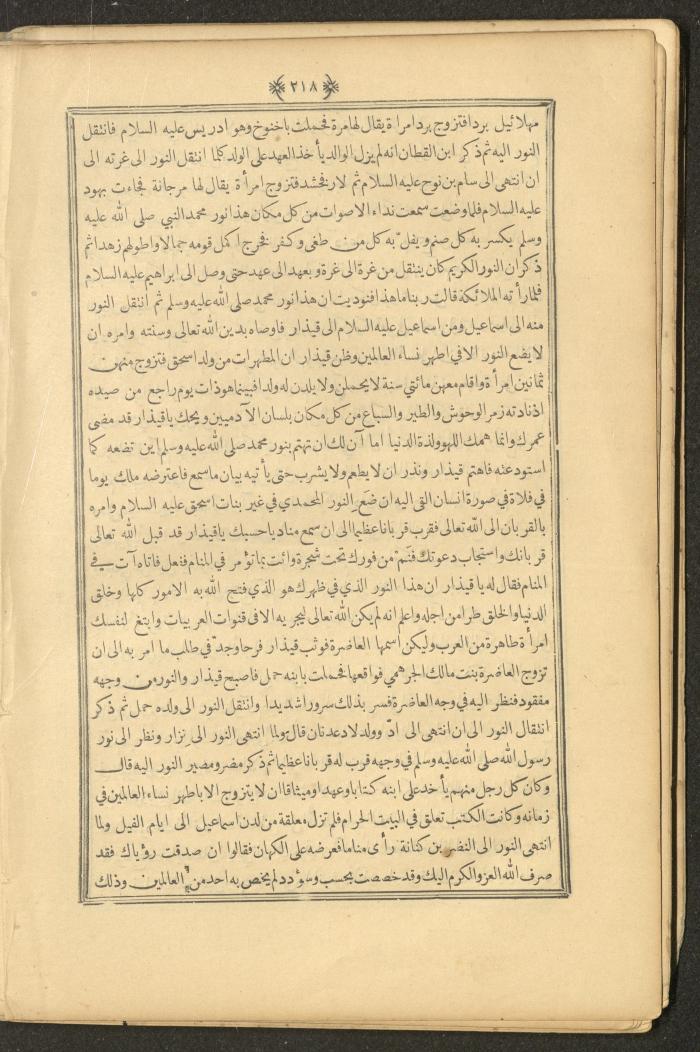 ٢١٨
مهلائيل بردا فتزوج بردامرا ة يقال لهامرة فحملت باخنوخ وهو ادريس عليه السلام فانتقل
النور اليه ثم ذكر ابن القطان انه لم يزل الوالد يأخذ العهد على الولد كلما انتقل النور الى غرته الى
ان انتهى الى سام بن نوح عليه السلام ثم لارفخشد فتزوج امرأة يقال لها مرجانة فجاءت بهود
عليه السلام فلما وضعت سمعت نداء الاصوات من كل مكان هذا نور محمد النبي صلى الله عليه
وسلم يكسر به كل صنم ويفل به كل من طغى وكفر فخرج اكمل قومه جمالا واطولهم زهدا ثم
ذكر ان النور الكريم كان ينتقل من غرة الى غرة وبعهد الى عهد حتى وصل الى ابراهيم عليه السلام
فلما رأته الملائكة قالت ربنا ما هذا فنوديت ان هذا نور محمد صلى الله عليه وسلم ثم انتقل النور
منه الى اسماعيل ومن اسماعيل عليه السلام الى قيذار فاوصاه بدين الله تعالى وسنته وامره ان
لا يضع النور الا في اطهر نساء العالمين وظن قيذار ان المطهرات من ولد اسحق فتزوج منهن
ثمانين امرأة واقام معهن مائتي سنة لا يحملن ولا يلدن له ولدا فبينما هو ذات يوم راجع من صيده
اذ نادته زمر الوحوش والطير والسباع من كل مكان بلسان الآدميين ويحك ياقيذار قد مضى
عمرك وانما همك اللهو ولذة الدنيا اما آن لك ان تهتم بنور محمد صلى الله عليه وسلم اين تضعه كما
استودعنه فاهتم قيذار ونذر ان لا يطعم ولا يشرب حتى يأتيه بيان ما سمع فاعترضه ملك يوما
في فلاة في صورة انسان التى اليه ان ضع النور المحمدي في غير بنات اسحق عليه السلام وامره
بالقربان الى الله تعالى فقرب قربانا عظيما الى ان سمع مناديا حسبك ياقيذار قد قبل الله تعالى
قربانك واستجاب دعوتك فنم من فورك تحت شجرة وائت بما تؤمر في المنام ففعل فاتاه آت في
المنام فقال له يا قيذار ان هذا النور الذي في ظهرك هو الذي فتح الله به الامور كلها وخلق
الدنيا والخلق طرا من اجله واعلم انه لم يكن الله تعالى ليجريه الا في قنوات العربيات وابتغ لنفسك
امرأة طاهرة من العرب وليكن اسمها العاضرة فوثب قيذار فرحا وجد في طلب ما امر به الى ان
تزوج العاضرة بنت مالك الجرهمي فواقعها فحملت بابنه حمل فاصبح قيذار والنور من وجهه
مفقود فنظر اليه في وجه العاضرة فسر بذلك سرورا شديدا وانتقل النور الى ولده حمل ثم ذكر
انتقال النور الى ان انتهى الى ادّ وولد لاد عدنان قال ولما انتهى النور الى نزار ونظر الى نور
رسول الله صلى الله عليه وسلم في وجهه قرب له قربانا عظيما ثم ذكر مضر ومصير النور اليه قال
وكان كل رجل منهم يأخذ على ابنه كتابا وعهدا وميثاقا ان لا يتزوج الا باطهر نساء العالمين في
زمانه وكانت الكتب تعلق في البيت الحرام فلم تزل معلقة من لدن اسماعيل الى ايام الفيل ولما
انتهى النور الى النضر بن كنانة رأى مناما فعرضه على الكهان فقالوا ان صدقت رؤياك فقد
صرف الله العز والكرم اليك وقد خصصت بحسب وسؤدد لم يخص به احد من العالمين وذلك